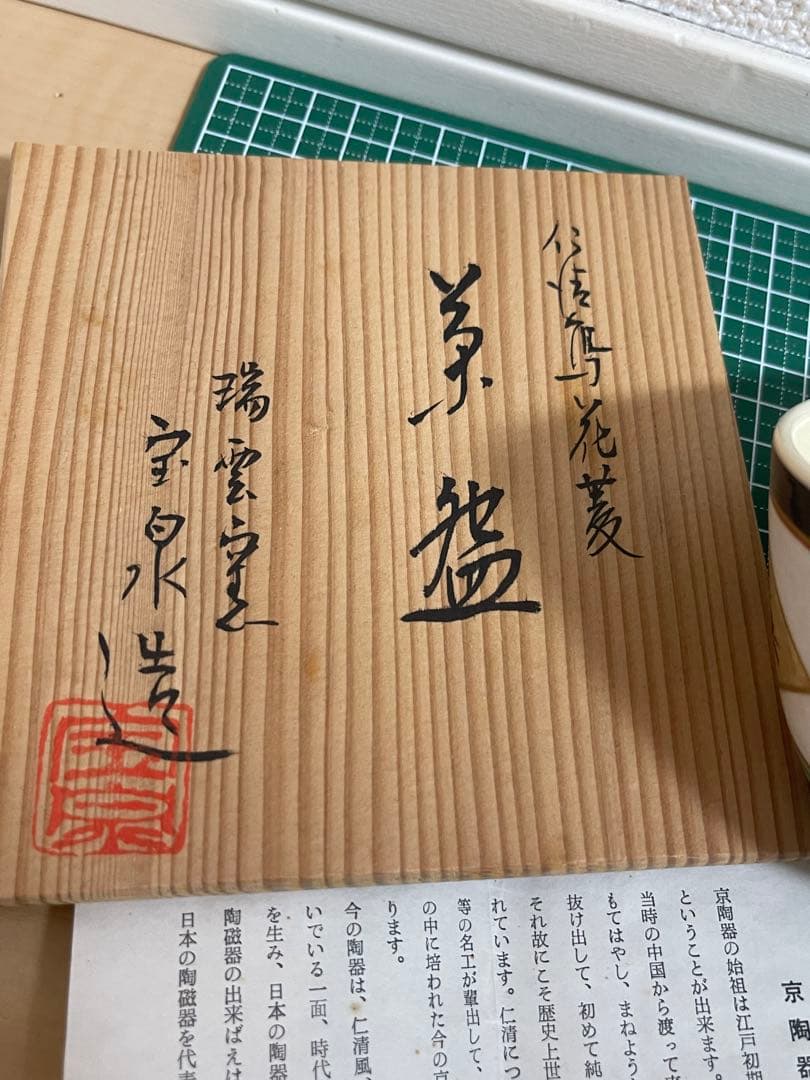 仁清花菱
茶盌
瑞雲窯
宝泉造
宝泉
京陶器
京陶器の始祖は江戸初期
ということが出来ます。
当時の中国から渡って
もてはやし、まねよう
抜け出して、初めて純
それ故にこそ歴史上世
れています。仁清につ
等の名工が輩出して、
の中に培われた今の京
ります。
今の陶器は、仁清風、
いでいる一面、時代
を生み、日本の陶器
陶磁器の出来ばえは
日本の陶磁器を代表